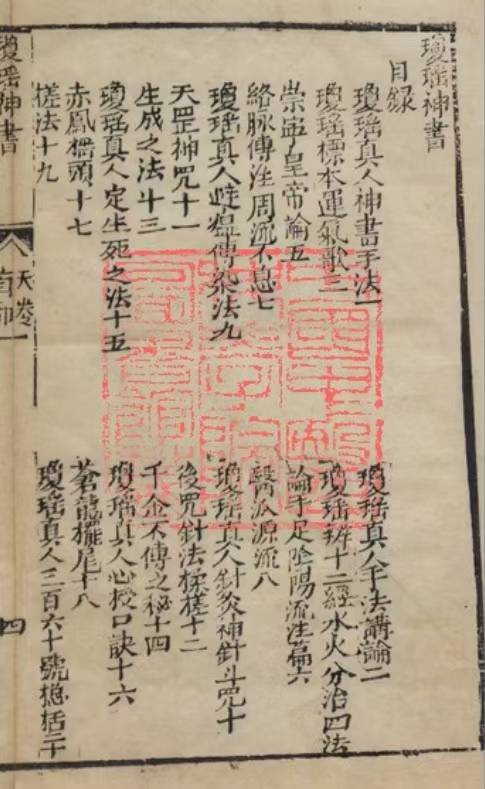 瓊瑤神書
目錄
瓊瑤真人神書手法一
瓊瑤真人手法講論二
瓊瑤標本運氣歌三
瓊瑤辨十二經水火分治四法
崇寧皇帝論五
論手足陰陽流注篇六
絡脉傳注周流不息七
醫瓜源流八
瓊瑤真人 瘟傳染法九
瓊瑤真人針灸神針斗咒十
天罡神咒十一
後咒針法 搓十二
生成之法十三
千金不傳之秘十四
瓊瑤真人定生死之法十五
瓊瑤真人心授口訣十六
赤鳳摇頭十七
蒼龍擺尾十八
搓法十九
瓊瑤真人三百六十號穏括二十
瓊瑤神書
天卷
四